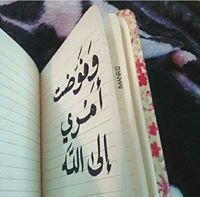 وَفَوَّضْتُ
أَمْرِي
إلىٰ اللّٰه
IMANR12